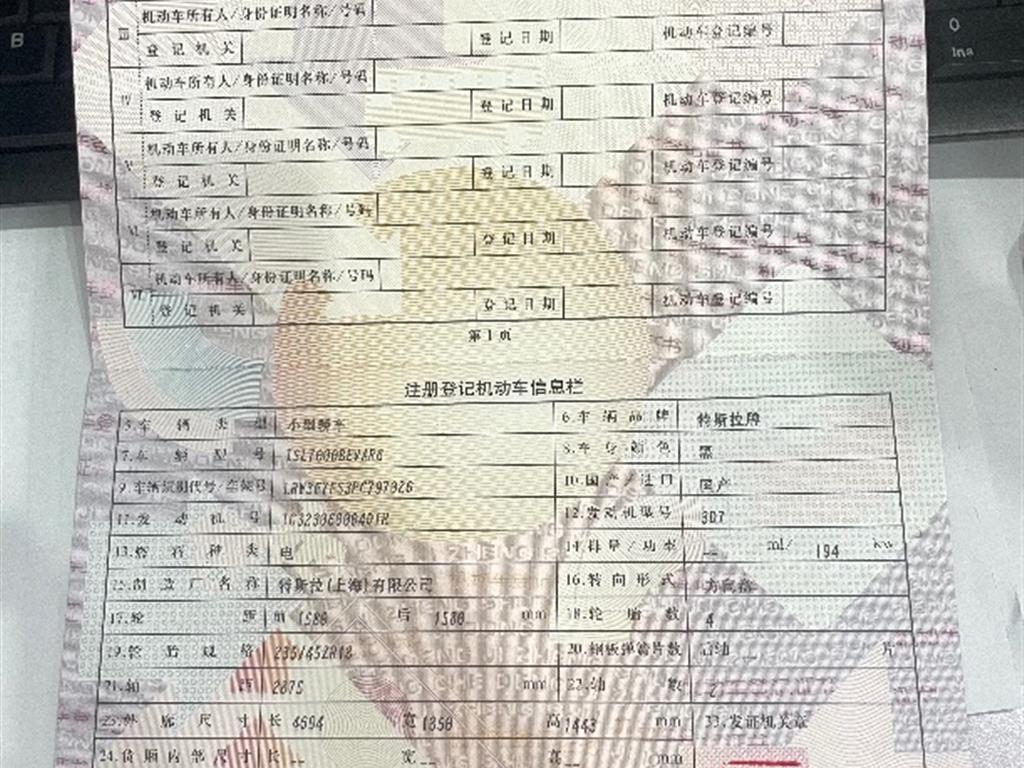 Ⅲ 机动车所有人/身份证明名称/号码
登记机关 登记日期 机动车登记编号
Ⅳ 机动车所有人/身份证明名称/号码
登记机关 登记日期 机动车登记编号
Ⅴ 机动车所有人/身份证明名称/号码
登记机关 登记日期 机动车登记编号
Ⅵ 机动车所有人/身份证明名称/号码
登记机关 登记日期 机动车登记编号
Ⅶ 机动车所有人/身份证明名称/号码
登记机关 登记日期 机动车登记编号
第1页
注册登记机动车信息栏
5.车辆类型 小型轿车 6.车辆品牌 特斯拉牌
7.车辆型号 8.车身颜色 黑
9.车辆识别代号/车架号 10.国产/进口 国产
11.发动机号 12.发动机型号 3D7
13.燃料种类 电 14.排量/功率 -- ml/ 194 kw
15.制造厂名称 特斯拉(上海)有限公司 16.转向形式 方向盘
17.轮距 前 1580 后 1580 mm 18.轮胎数 4
19.轮胎规格 235/45ZR18 20.钢板弹簧片数 后轴 -- 片
21.轴距 2875 mm 22.轴数 2
23.外廓尺寸 长 4694 宽 1850 高 1443 mm 33.发证机关章
24.货厢内部尺寸 长 -- 宽 -- 高 -- mm